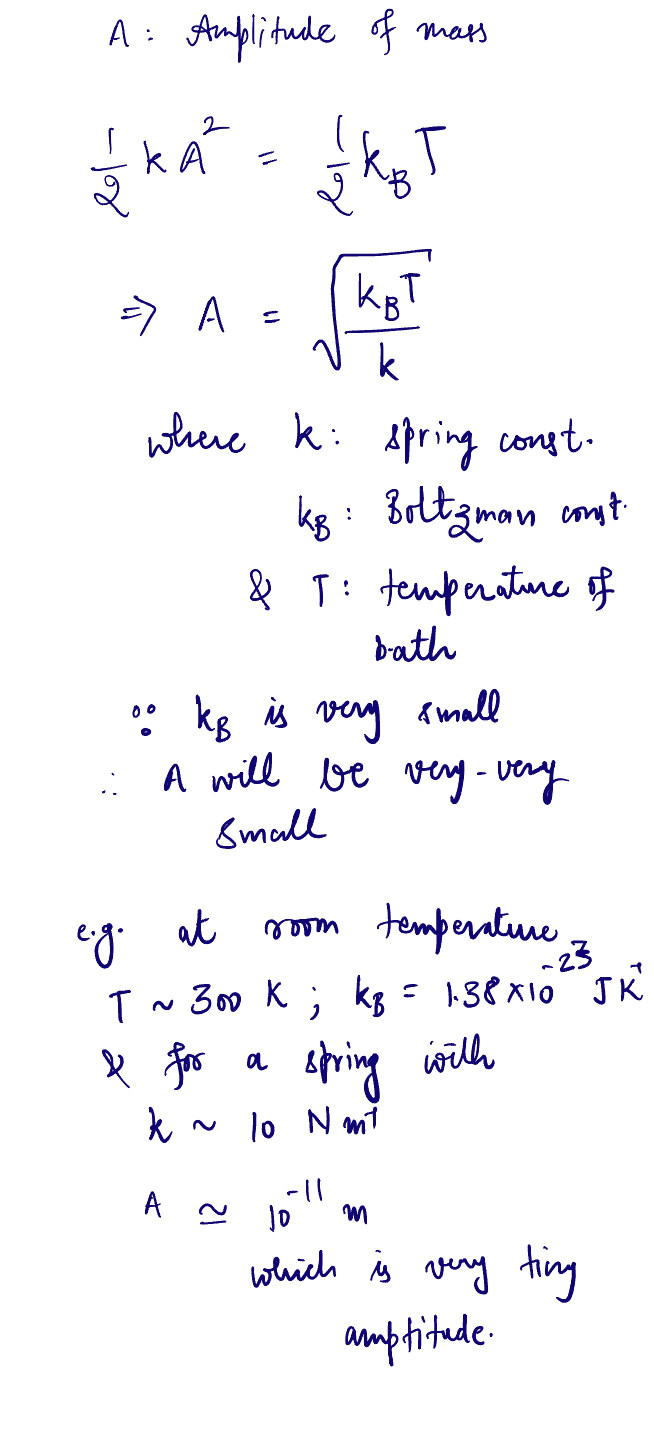 A : Amplitude of mass
1/2 k A² = 1/2 k_B T
⇒ A = √(k_B T / k)
where k : spring const.
k_B : Boltzman const.
& T : temperature of
bath
∵ k_B is very small
∴ A will be very-very
small
e.g. at room temperature
T ~ 300 K ; k_B = 1.38×10⁻²³ J K⁻¹
& for a spring with
k ~ 10 N m⁻¹
A ≃ 10⁻¹¹ m
which is very tiny
amptitude.